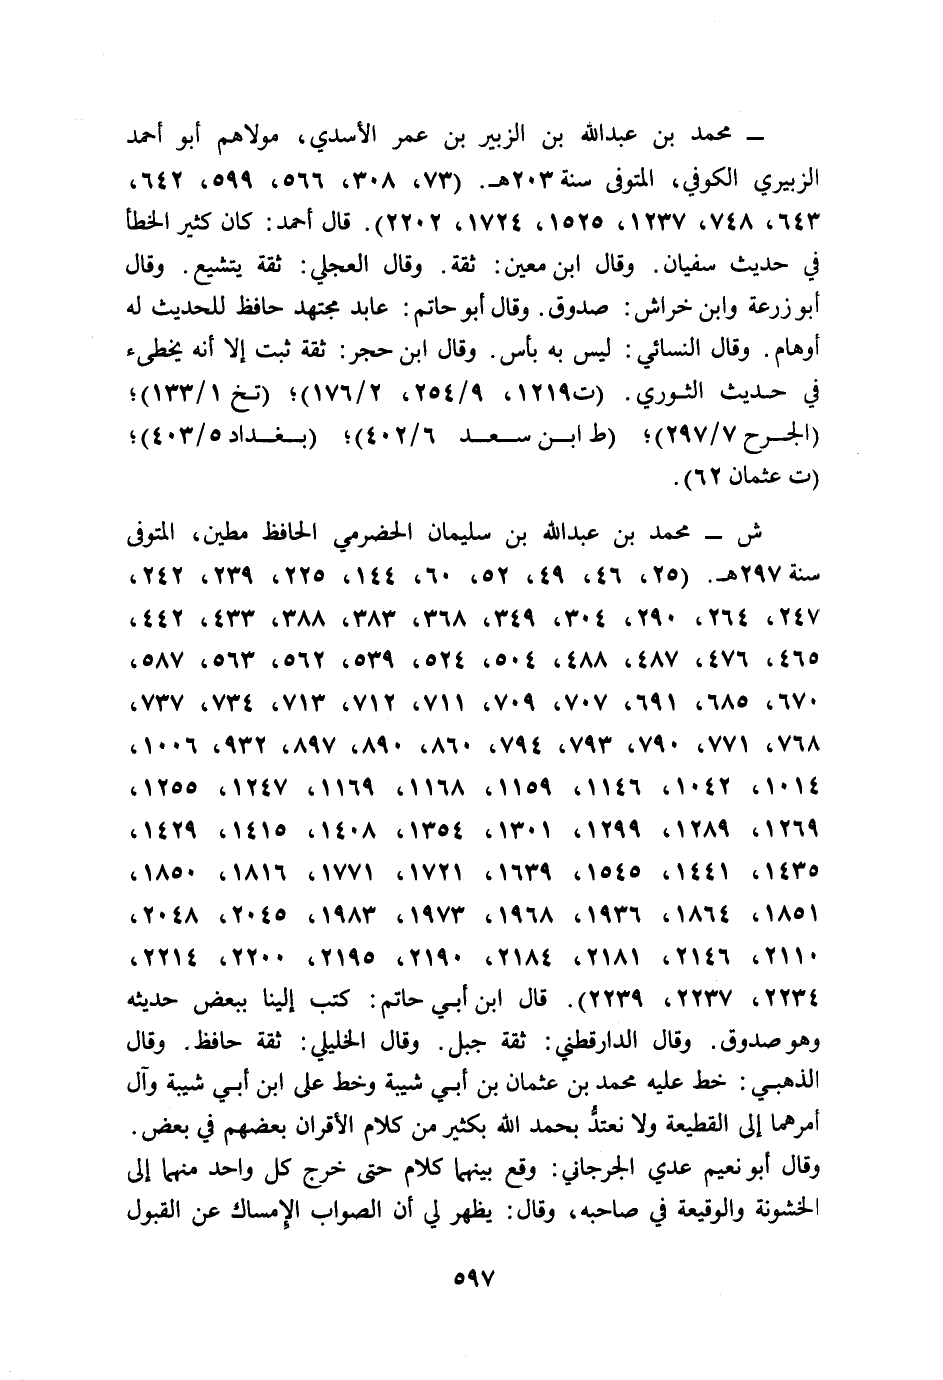 ــ محمد بن عبدالله بن الزبير بن عمر الأسدي، مولاهم أبو أحمد
الزبيري الكوفي، المتوفى سنة ٢٠٣هـ. (٧٣، ٣٠٨، ٥٦٦، ٥٩٩، ٦٤٢،
٦٤٣، ٧٤٨، ١٢٣٧، ١٥٢٥، ١٧٢٤، ٢٢٠٢). قال أحمد: كان كثير الخطأ
في حديث سفيان. وقال ابن معين: ثقة. وقال العجلي: ثقة يتشيع. وقال
أبو زرعة وابن خراش: صدوق. وقال أبو حاتم: عابد مجتهد حافظ للحديث له
أوهام. وقال النسائي: ليس به بأس. وقال ابن حجر: ثقة ثبت إلا أنه يخطىء
في حديث الثوري. (ت١٢١٩، ٢٥٤/٩، ١٧٦/٢)؛ (تخ ١٣٣/١)؛
(الجرح ٢٩٧/٧)؛ (ط ابن سعد ٤٠٢/٦)؛ (بغداد ٤٠٣/٥)؛
(ت عثمان ٦٢).
ش ــ محمد بن عبدالله بن سليمان الحضرمي الحافظ مطين، المتوفى
سنة ٢٩٧هـ. (٢٥، ٤٦، ٤٩، ٥٢، ٦٠، ١٤٤، ٢٢٥، ٢٣٩، ٢٤٢،
٢٤٧، ٢٦٤، ٢٩٠، ٣٠٤، ٣٤٩، ٣٦٨، ٣٨٣، ٣٨٨، ٤٣٣، ٤٤٢،
٤٦٥، ٤٧٦، ٤٨٧، ٤٨٨، ٥٠٤، ٥٢٤، ٥٣٩، ٥٦٢، ٥٦٣، ٥٨٧،
٦٧٠، ٦٨٥، ٦٩١، ٧٠٧، ٧٠٩، ٧١١، ٧١٢، ٧١٣، ٧٣٤، ٧٣٧،
٧٦٨، ٧٧١، ٧٩٠، ٧٩٣، ٧٩٤، ٨٦٠، ٨٩٠، ٨٩٧، ٩٣٢، ١٠٠٦،
١٠١٤، ١٠٤٢، ١١٤٦، ١١٥٩، ١١٦٨، ١١٦٩، ١٢٤٧، ١٢٥٥،
١٢٦٩، ١٢٨٩، ١٢٩٩، ١٣٠١، ١٣٥٤، ١٤٠٨، ١٤١٥، ١٤٢٩،
١٤٣٥، ١٤٤١، ١٥٤٥، ١٦٣٩، ١٧٢١، ١٧٧١، ١٨١٦، ١٨٥٠،
١٨٥١، ١٨٦٤، ١٩٣٦، ١٩٦٨، ١٩٧٣، ١٩٨٣، ٢٠٤٥، ٢٠٤٨،
٢١١٠، ٢١٤٦، ٢١٨١، ٢١٨٤، ٢١٩٠، ٢١٩٥، ٢٢٠٠، ٢٢١٤،
٢٢٣٤، ٢٢٣٧، ٢٢٣٩). قال ابن أبي حاتم: كتب إلينا ببعض حديثه
وهو صدوق. وقال الدارقطني: ثقة جبل. وقال الخليلي: ثقة حافظ. وقال
الذهبي: خط عليه محمد بن عثمان بن أبي شيبة وخط على ابن أبي شيبة وآل
أمرهما إلى القطيعة ولا نعتدُّ بحمد الله بكثير من كلام الأقران بعضهم في بعض.
وقال أبو نعيم عدي الجرجاني: وقع بينهما كلام حتى خرج كل واحد منهما إلى
الخشونة والوقيعة في صاحبه، وقال: يظهر لي أن الصواب الإمساك عن القبول
٥٩٧